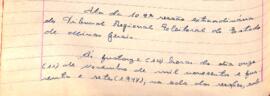 Ata da 10.ª sessão extraordinária
do Tribunal Regional Eleitoral do Estado
de Minas Gerais.
Às quatorze (14) horas do dia onze
(11) de novembro de mil novecentos e qua-
renta e sete (1947), na sala das sessões,